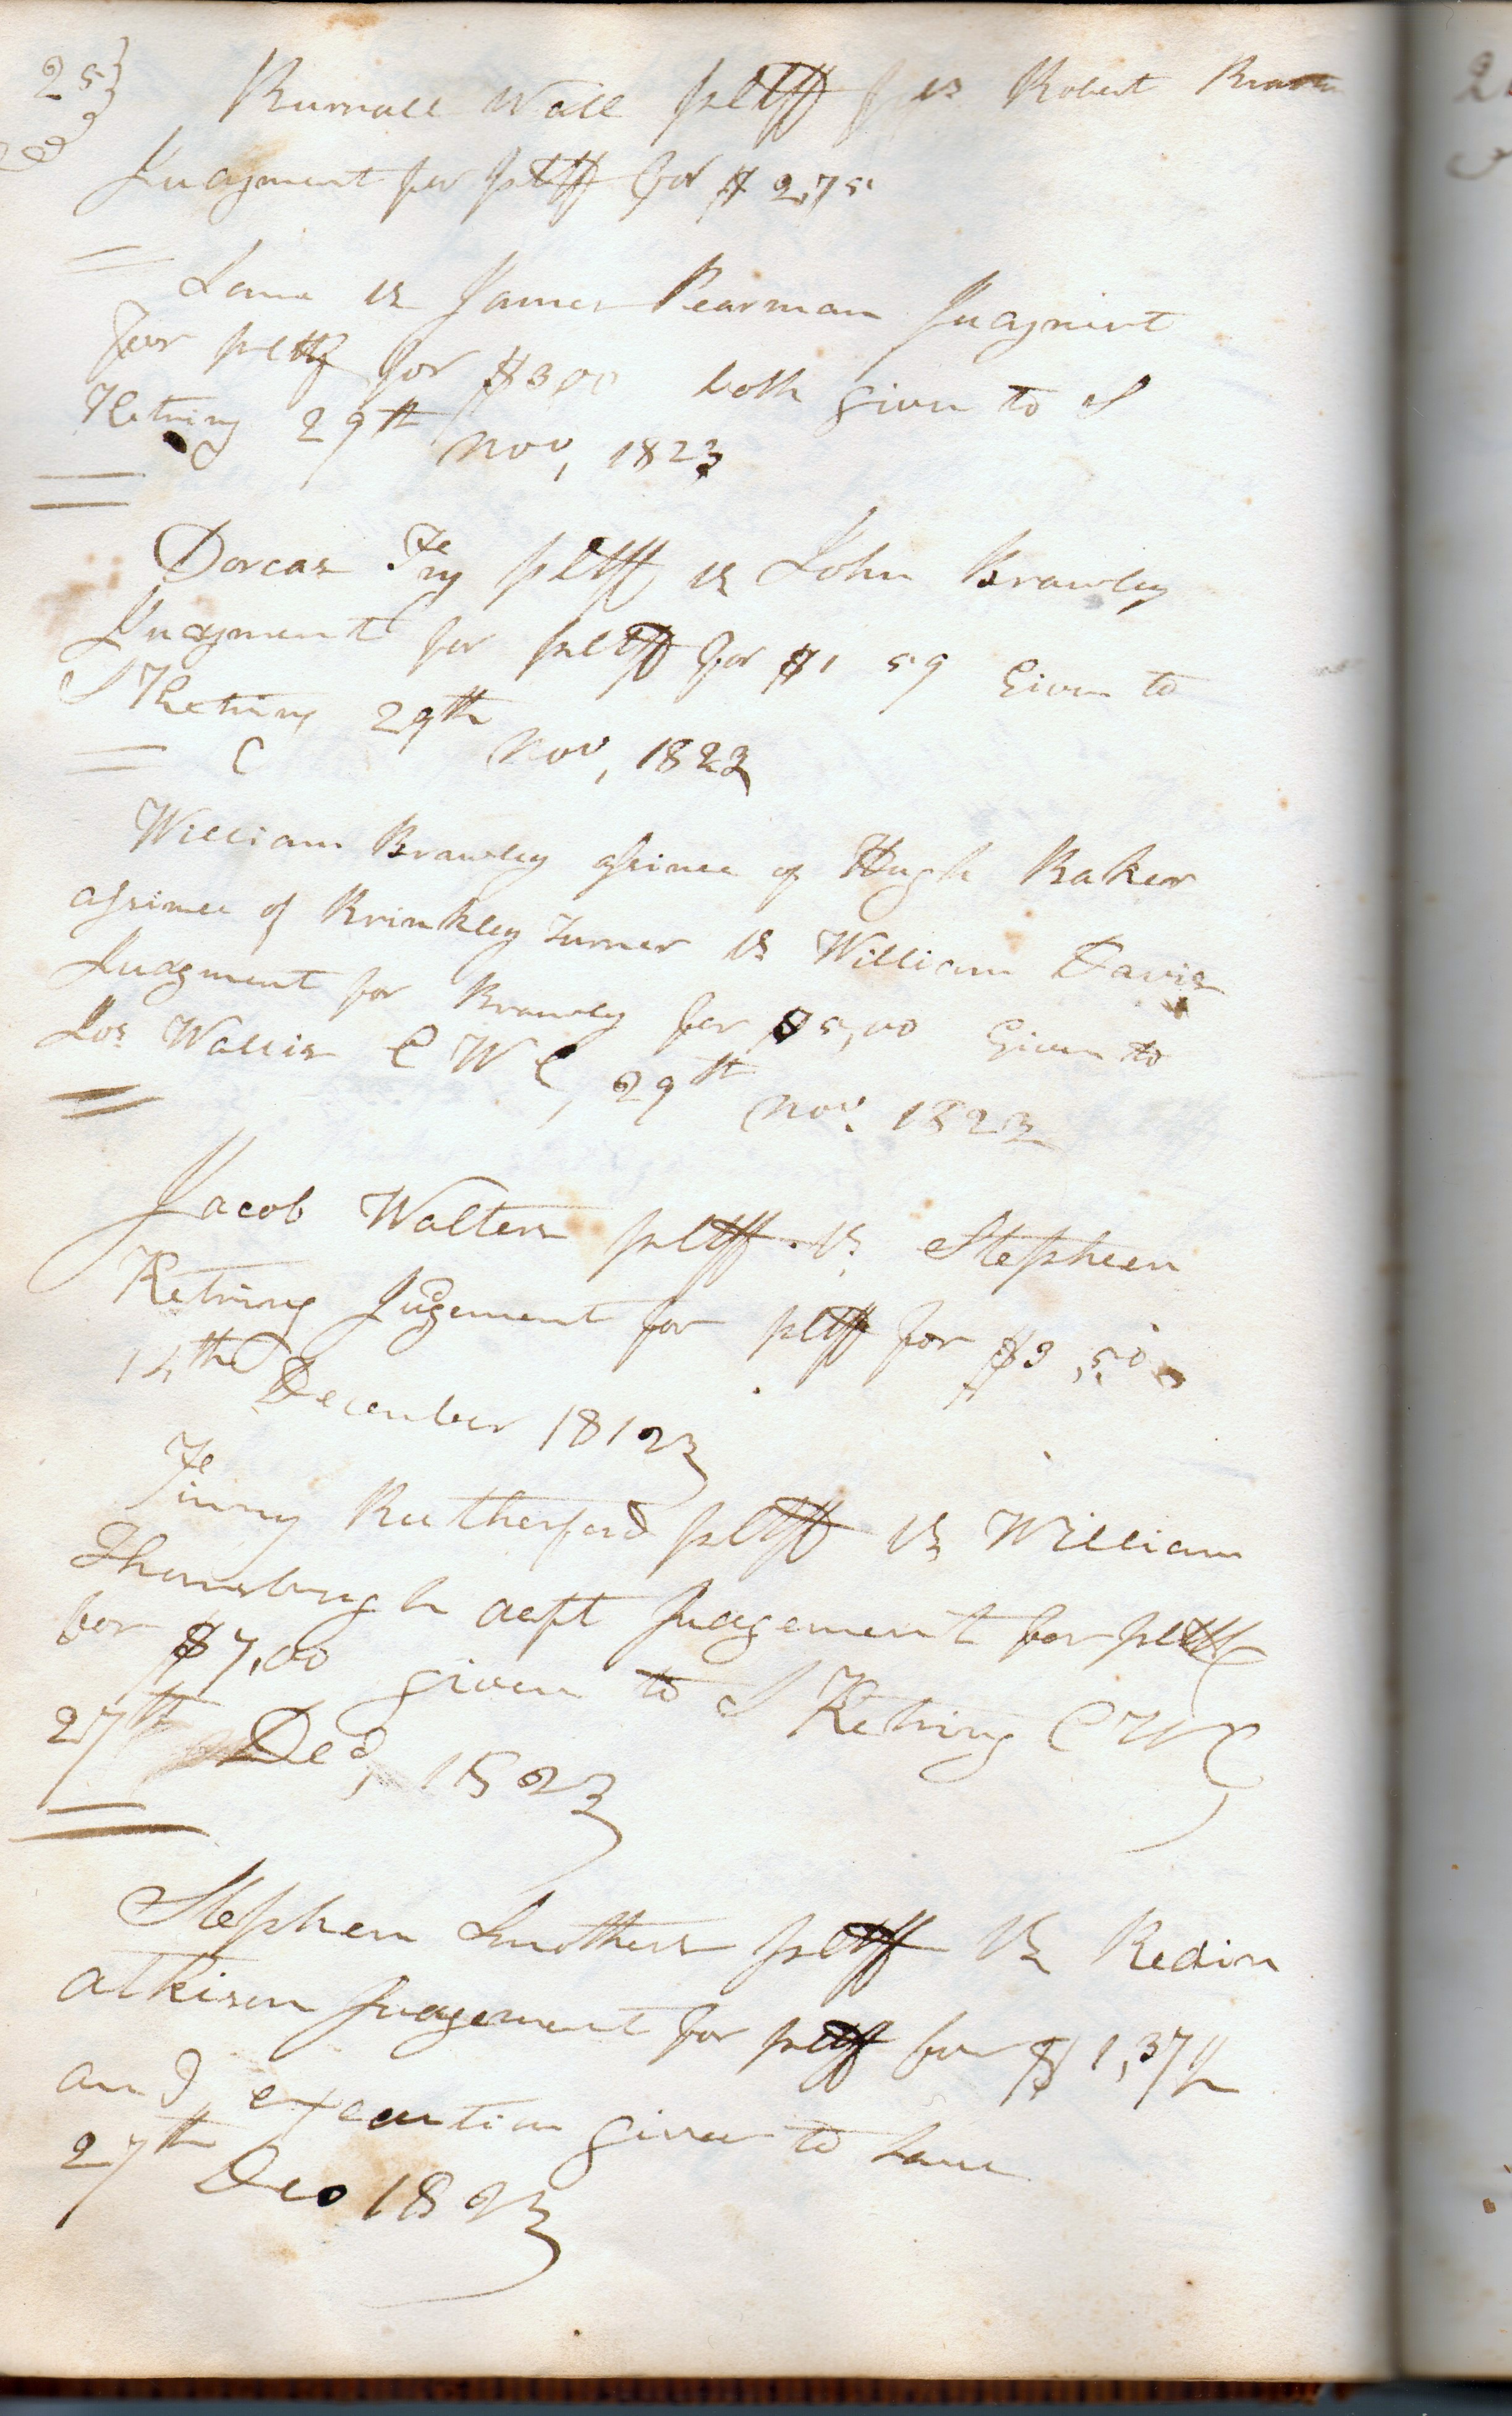 25
Burnall Wall pltff vs Robert
Judgment for pltff for $2,75
Same vs James Pearman Judgment
for pltff for $3,00 both given to S
Ketring 29th Nov, 1823
Dorcas Fry pltff vs John Brawley
Judgment for pltff for $1 59 Given to
S Ketring 29th Nov, 1823
C
William Brawley assinee of Hugh Baker
assinee of Brinkley Turner vs William Davis
Judgment for Brawley for $5,00 Given to
Jos Wallis C W C, 29th Nov. 1823
Jacob Walters pltff vs Stepheen
Ketring Judgement for pltff for $3,50
14th December 18123
Finny Rutherford pltff vs William
Thornburgh deft Judgement for pltff
for $7,00 given to S Ketring C W C
27th Dec, 1823
Stephen Smothers pltff vs Redin
Atkison Judgement for pltff for $1,37½
and execution given to Same
27th Dec 1823